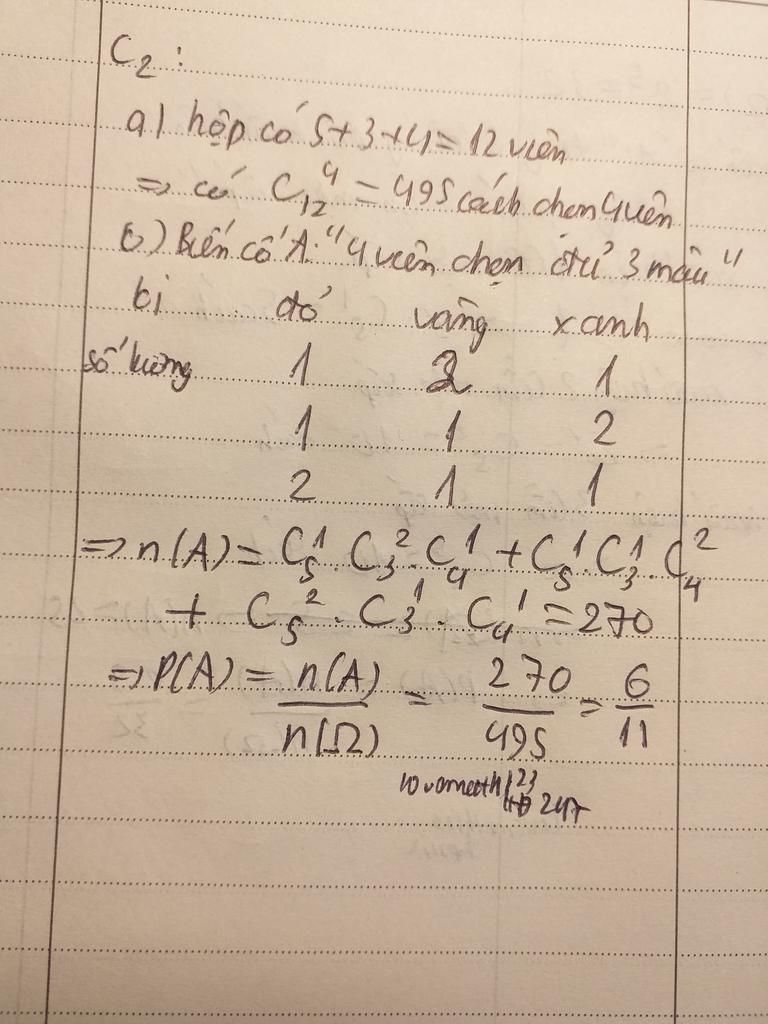 C₂:
a) hộp có 5+3+4=12 viên
=> có C₁₂⁴ = 495 cách chọn 4 viên
b) Biến cố A: "4 viên chọn đủ 3 màu"
bi đỏ vàng xanh
số lượng 1 2 1
1 1 2
2 1 1
=> n(A) = C₅¹ . C₃² . C₄¹ + C₅¹ . C₃¹ . C₄²
+ C₅² . C₃¹ . C₄¹ = 270
=> P(A) = n(A)/n(Ω) = 270/495 = 6/11